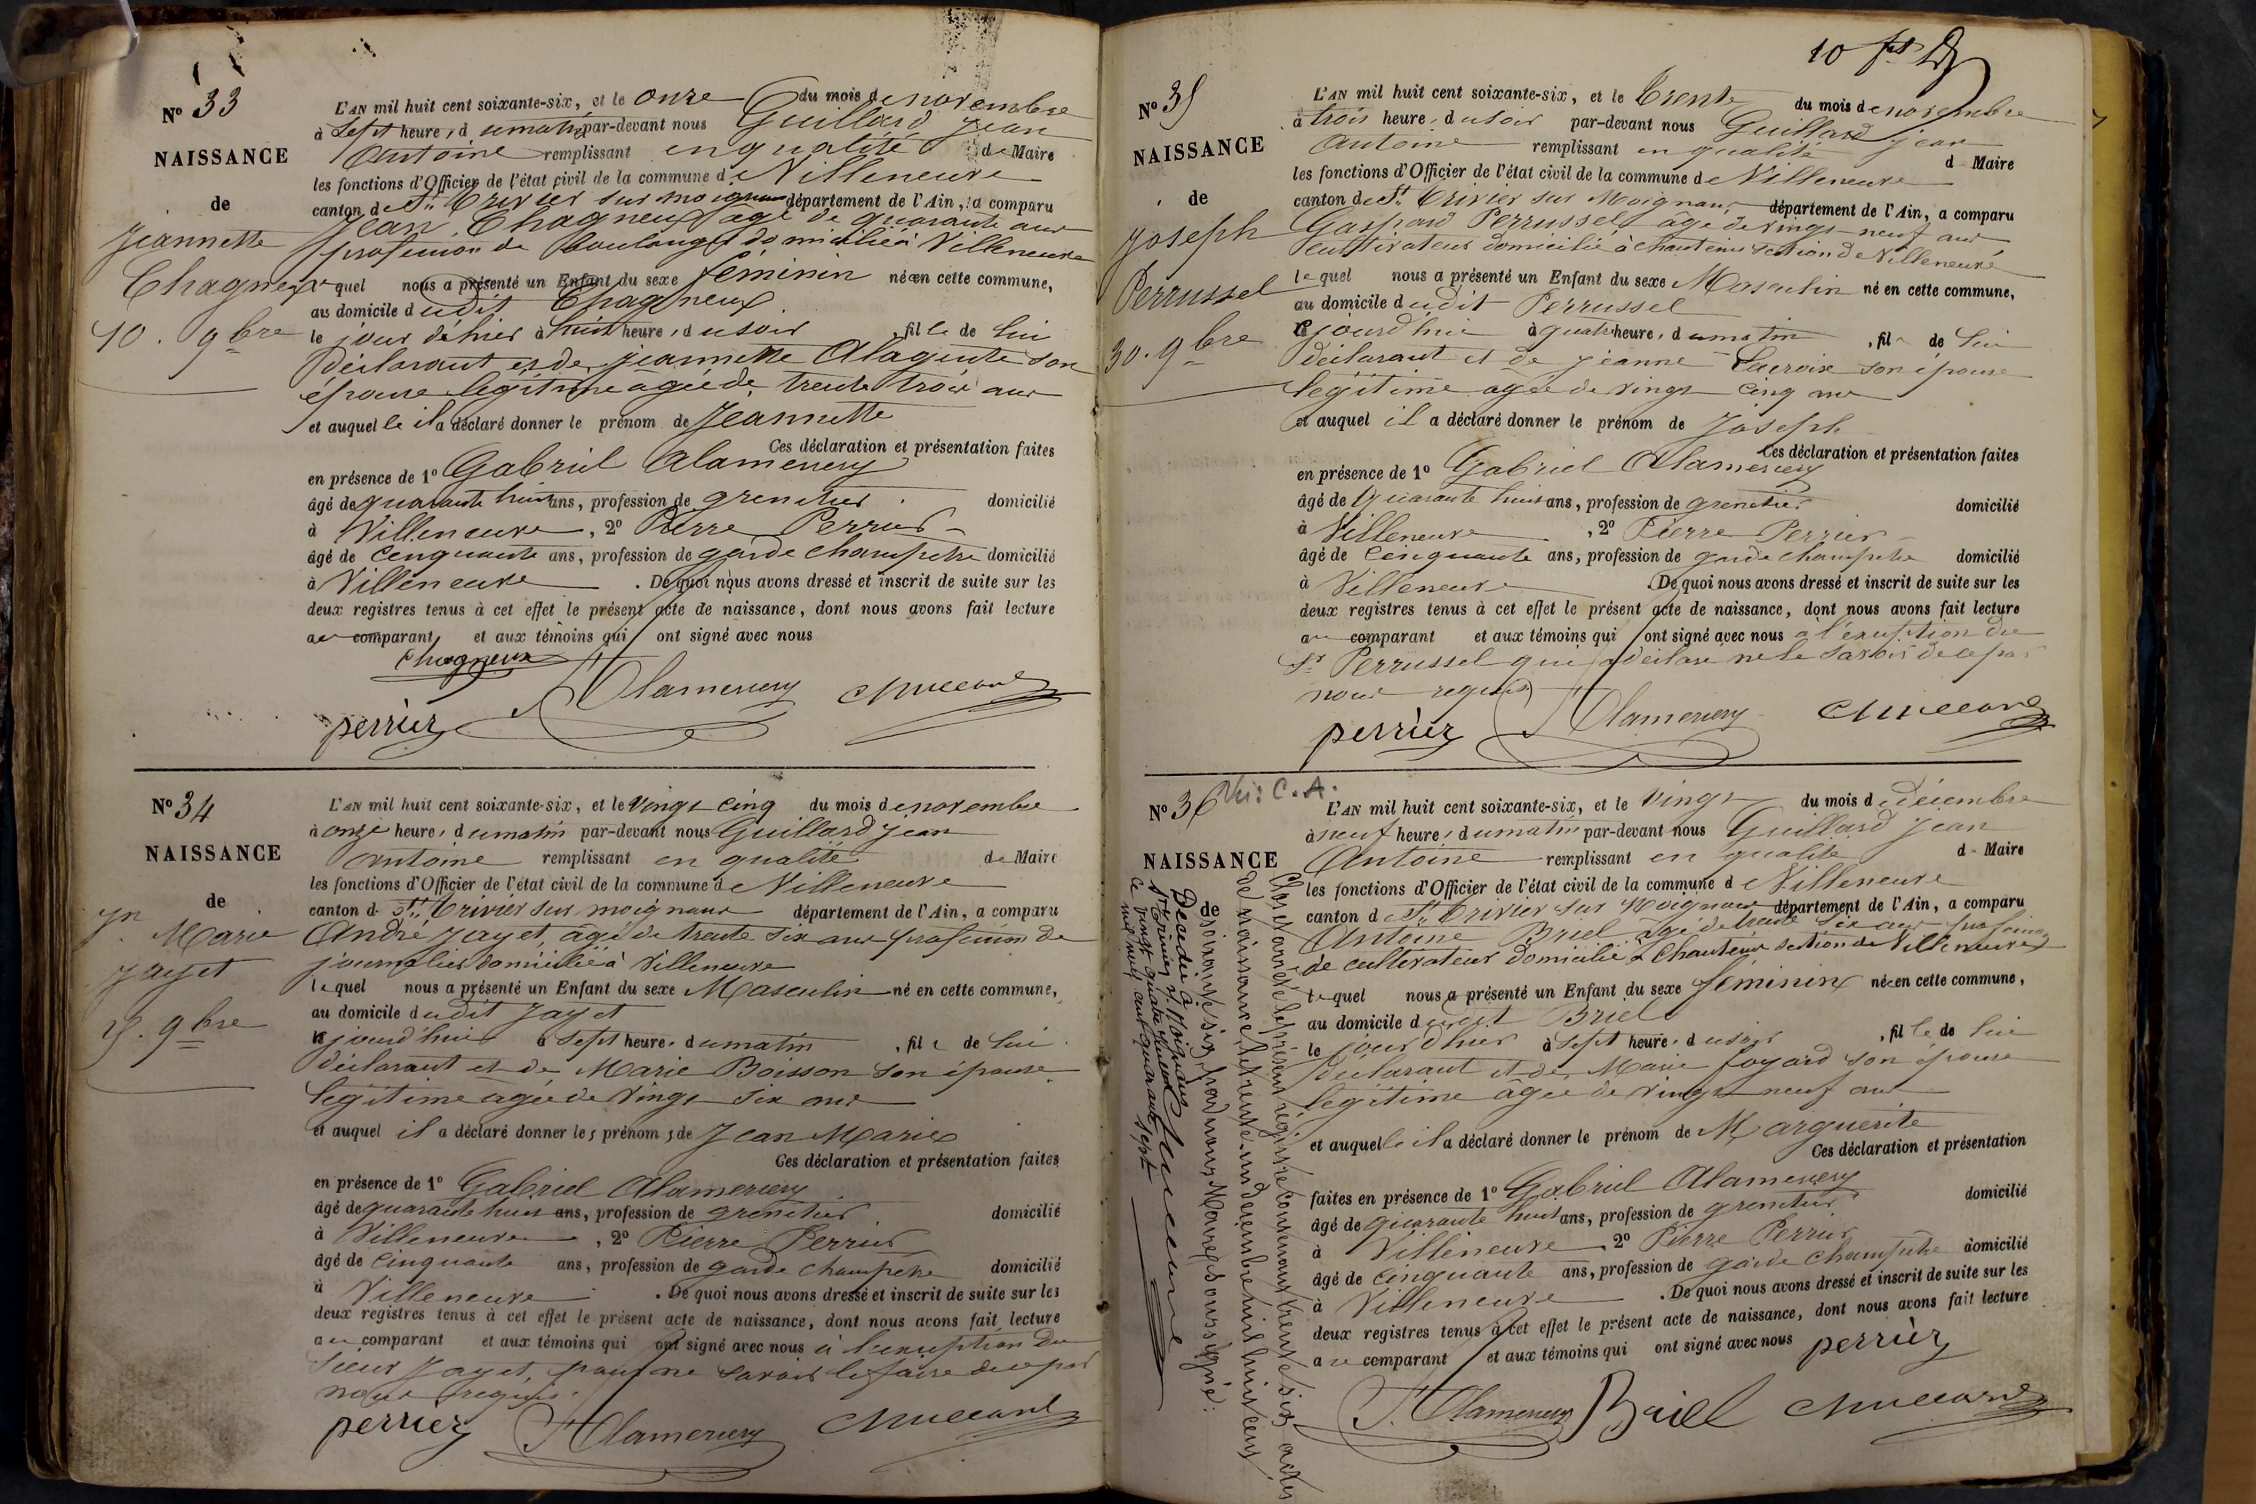 Nº 33
NAISSANCE
de
Jeannette
Chagneux
10. 9bre
L'AN mil huit cent soixante-six, et le onze du mois de novembre
à sept heures du matin par-devant nous Guillard Jean
Antoine remplissant en qualité de Maire
les fonctions d'Officier de l'état civil de la commune de Villeneuve
canton de St Trivier sur moignans département de l'Ain, a comparu
Jean Chagneux âgé de quarante ans
profession de boulanger domicilié à Villeneuve
lequel nous a présenté un Enfant du sexe féminin née en cette commune,
au domicile dudit Chagneux
le jour d'hier à huit heures du soir, fille de lui
déclarant et de Jeannette Alagente son
épouse légitime âgée de trente trois ans
et auquelle il a déclaré donner le prénom de Jeannette
Ces déclaration et présentation faites
en présence de 1º Gabriel Alamercery
âgé de quarante huit ans, profession de grenetier domicilié
à Villeneuve, 2º Pierre Perrier
âgé de cinquante ans, profession de garde champêtre domicilié
à Villeneuve. De quoi nous avons dressé et inscrit de suite sur les
deux registres tenus à cet effet le présent acte de naissance, dont nous avons fait lecture
au comparant et aux témoins qui ont signé avec nous
Chagneux
perrier Alamercery Guillard
Nº 34
NAISSANCE
de
Jn Marie
Jayet
25. 9bre
L'AN mil huit cent soixante-six, et le vingt cinq du mois de novembre
à onze heures du matin par-devant nous Guillard Jean
Antoine remplissant en qualité de Maire
les fonctions d'Officier de l'état civil de la commune de Villeneuve
canton de St Trivier sur moignans département de l'Ain, a comparu
André Jayet, âgé de trente six ans profession de
journalier domicilié à Villeneuve
lequel nous a présenté un Enfant du sexe Masculin né en cette commune,
au domicile dudit Jayet
cejourd'hui à sept heures du matin, fils de lui
déclarant et de Marie Boisson son épouse
légitime âgée de vingt six ans
et auquel il a déclaré donner les prénoms de Jean Marie
Ces déclaration et présentation faites
en présence de 1º Gabriel Alamercery
âgé de quarante huit ans, profession de grenetier domicilié
à Villeneuve, 2º Pierre Perrier
âgé de cinquante ans, profession de garde champêtre domicilié
à Villeneuve. De quoi nous avons dressé et inscrit de suite sur les
deux registres tenus à cet effet le présent acte de naissance, dont nous avons fait lecture
au comparant et aux témoins qui ont signé avec nous à l'exception du
sieur Jayet, pour ne savoir le faire de ce par
nous requis.
perrier Alamercery Guillard
10 fs
Nº 35
NAISSANCE
de
Joseph
Perrussel
30. 9bre
L'AN mil huit cent soixante-six, et le trente du mois de novembre
à trois heures du soir par-devant nous Guillard Jean
Antoine remplissant en qualité de Maire
les fonctions d'Officier de l'état civil de la commune de Villeneuve
canton de St Trivier sur Moignans département de l'Ain, a comparu
Gaspard Perrussel âgé de vingt neuf ans
cultivateur domicilié à Chanteins section de Villeneuve
lequel nous a présenté un Enfant du sexe Masculin né en cette commune,
au domicile dudit Perrussel
cejourd'hui à quatre heures du matin, fils de lui
déclarant et de Jeanne Lacroix son épouse
légitime âgée de vingt cinq ans
et auquel il a déclaré donner le prénom de Joseph
Ces déclaration et présentation faites
en présence de 1º Gabriel Alamercery
âgé de quarante huit ans, profession de grenetier domicilié
à Villeneuve, 2º Pierre Perrier
âgé de cinquante ans, profession de garde champêtre domicilié
à Villeneuve. De quoi nous avons dressé et inscrit de suite sur les
deux registres tenus à cet effet le présent acte de naissance, dont nous avons fait lecture
au comparant et aux témoins qui ont signé avec nous à l'exception du
Sr Perrussel qui a déclaré ne le savoir de ce par
nous requis
perrier Alamercery Guillard
Nº 36 C.A.
NAISSANCE
de
L'AN mil huit cent soixante-six, et le vingt du mois de décembre
à neuf heures du matin par-devant nous Guillard Jean
Antoine remplissant en qualité de Maire
les fonctions d'Officier de l'état civil de la commune de Villeneuve
canton de St Trivier sur Moignans département de l'Ain, a comparu
Antoine Briel âgé de trente six ans profession
de cultivateur domicilié à Chanteins section de Villeneuve
lequel nous a présenté un Enfant du sexe féminin née en cette commune,
au domicile dudit Briel
le jour d'hier à sept heures du soir, fille de lui
déclarant et de Marie foyard son épouse
légitime âgée de vingt neuf ans
et auquelle il a déclaré donner le prénom de Marguerite
Ces déclaration et présentation
faites en présence de 1º Gabriel Alamercery
âgé de quarante huit ans, profession de grenetier domicilié
à Villeneuve 2º Pierre Perrier
âgé de cinquante ans, profession de garde champêtre domicilié
à Villeneuve. De quoi nous avons dressé et inscrit de suite sur les
deux registres tenus à cet effet le présent acte de naissance, dont nous avons fait lecture
au comparant et aux témoins qui ont signé avec nous perrier
Alamercery Briel Guillard
Clos et arrêté le présent régistre contenant trente six actes
de naissance le trente un décembre mil huit cent
soixante six, par nous Maire soussigné.
Guillard
Décédée à
St Trivier s/ Moignans
le vingt quatre
mil neuf cent quarante sept